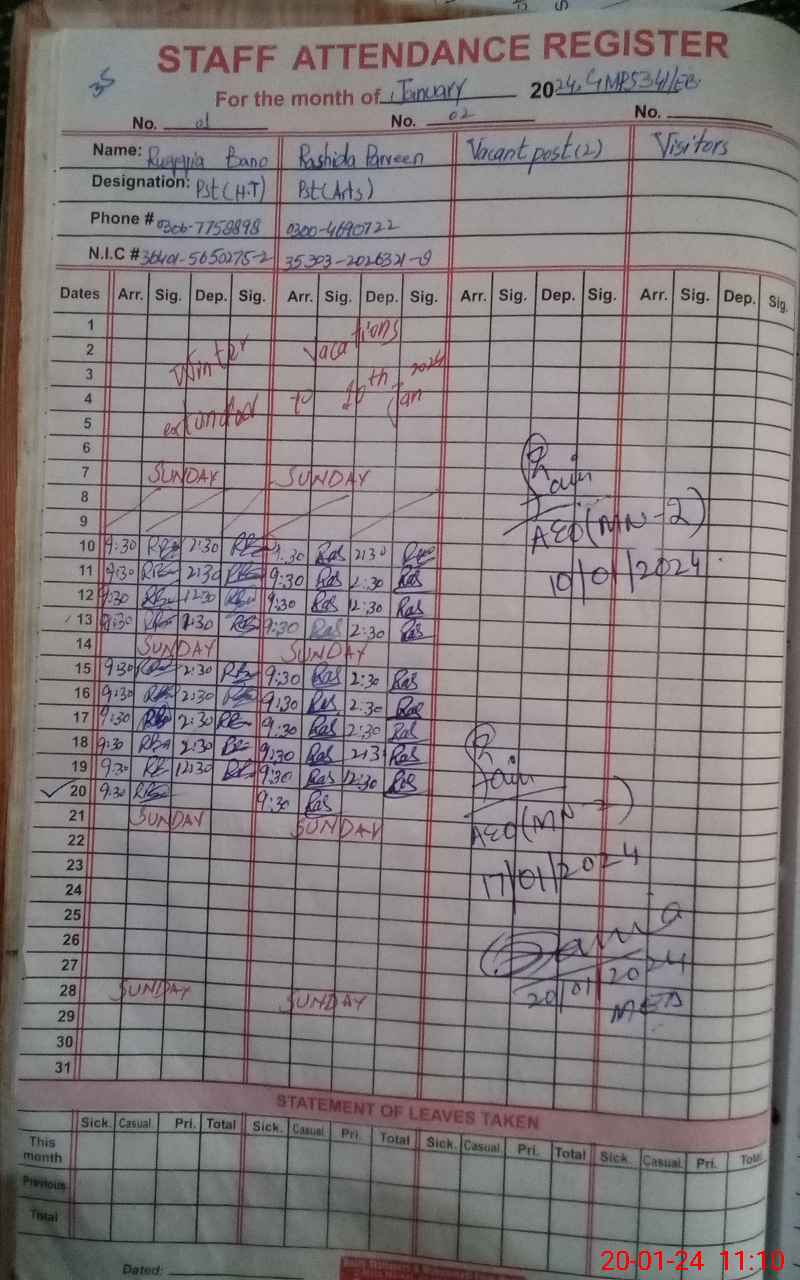 STAFF ATTENDANCE REGISTER
For the month of January 2024, GMPS 341/EB.
No. 01 No. 02 No.
Name: Ruqqqia Bano Rashida Parveen Vacant post (2) Visitors
Designation: Pst (H.T) Pst (Arts)
Phone # 0306-7758898 0300-4690722
N.I.C # 36401-5650275-2 35303-2026321-8
Dates Arr. Sig. Dep. Sig. Arr. Sig. Dep. Sig. Arr. Sig. Dep. Sig. Arr. Sig. Dep. Sig.
1
2 Winter Vacations
3
4 extended to 10th Jan 2024
5
6
7 SUNDAY SUNDAY
8
9
AEO (MN-2)
10 9:30 2:30 9:30 Ras 2:30
10/01/2024
11 9:30 2:30 9:30 Ras 2:30 Ras
12 9:30 12:30 9:30 Ras 12:30 Ras
13 9:30 2:30 9:30 Ras 2:30 Ras
14 SUNDAY SUNDAY
15 9:30 2:30 9:30 Ras 2:30 Ras
16 9:30 2:30 9:30 Ras 2:30 Ras
17 9:30 2:30 9:30 Ras 2:30 Ras
18 9:30 2:30 9:30 Ras 2:3 Ras
19 9:30 12:30 9:30 Ras 12:30 Ras
20 9:30 9:30 Ras
21 SUNDAY SUNDAY
AEO (MN-2)
22
23
17/01/2024
24
25
26
27
20/01/2024
28 SUNDAY SUNDAY
MEA
29
30
31
STATEMENT OF LEAVES TAKEN
Sick. Casual. Pri. Total Sick. Casual. Pri. Total Sick. Casual. Pri. Total Sick. Casual. Pri. Total
This month
Previous
Total
Dated:
20-01-24 11:10